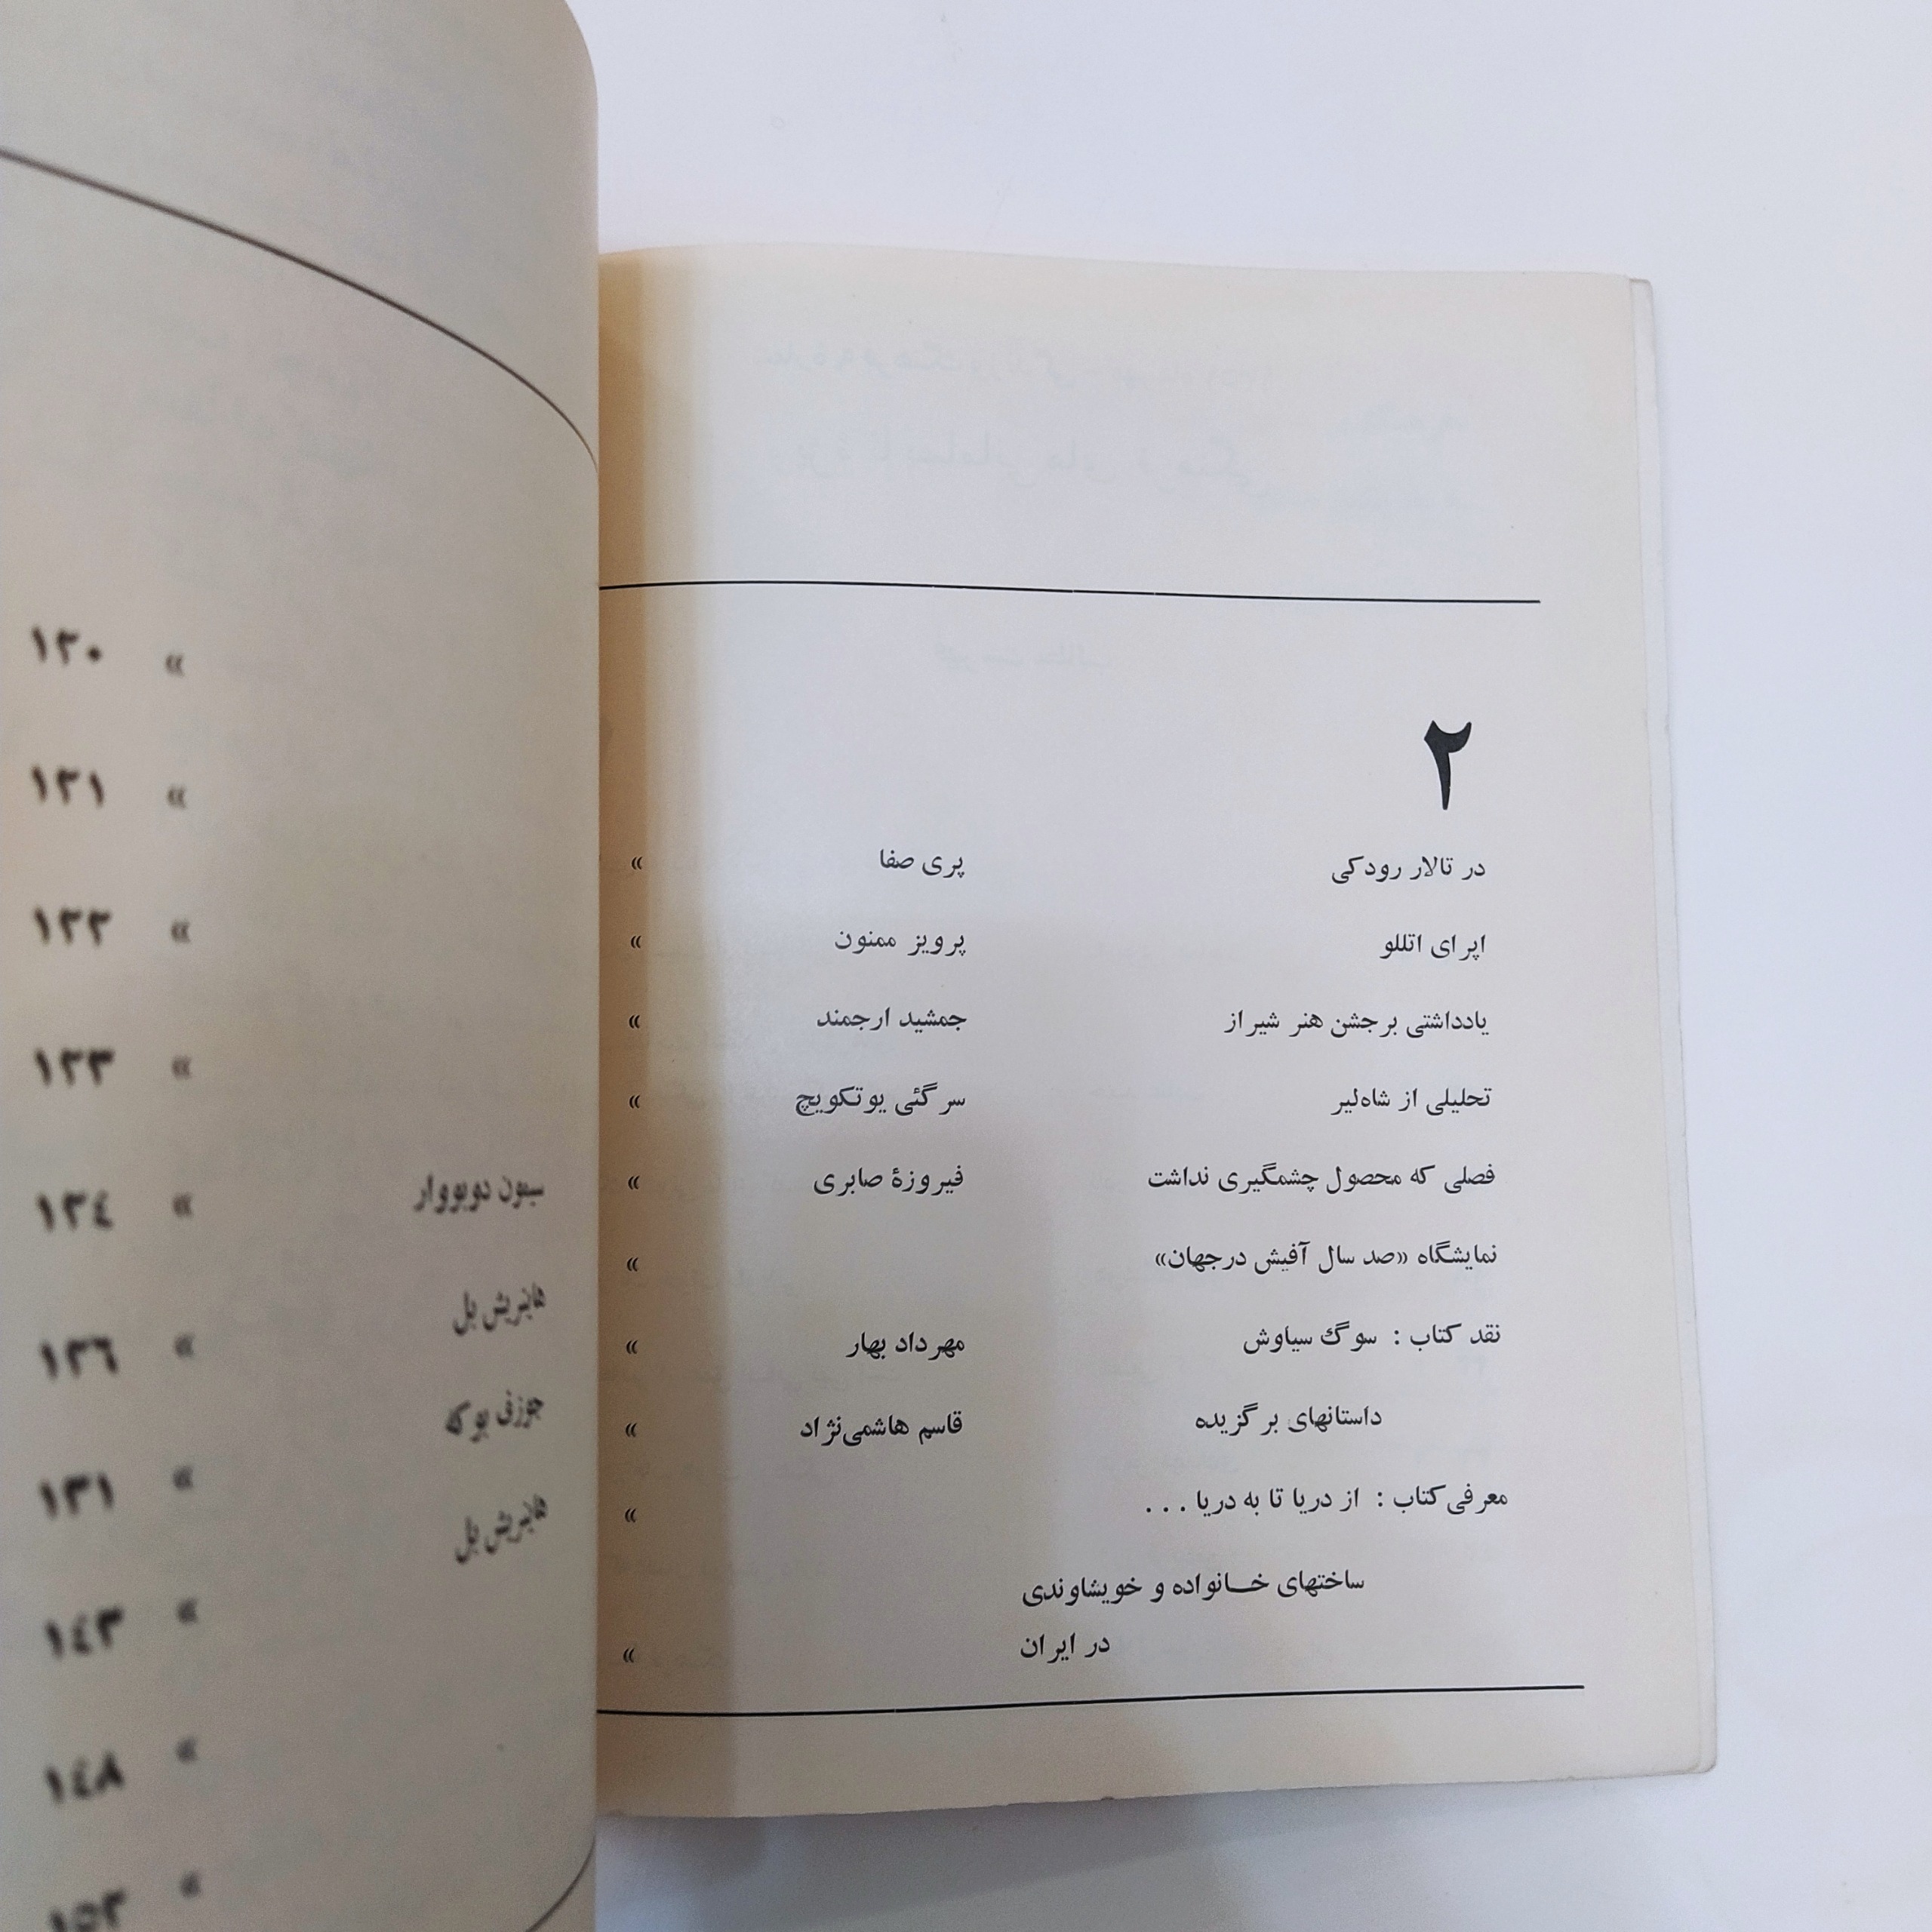 ۲
در تالار رودکی پری صفا »
اپرای اتللو پرویز ممنون »
یادداشتی بر جشن هنر شیراز جمشید ارجمند »
تحلیلی از شاه‌لیر سرگئی یوتکویچ »
فصلی که محصول چشمگیری نداشت فیروزۀ صابری »
نمایشگاه «صد سال آفیش درجهان» »
نقد کتاب : سوگ سیاوش مهرداد بهار »
داستانهای برگزیده قاسم هاشمی‌نژاد »
معرفی کتاب : از دریا تا به دریا ... »
ساختهای خانواده و خویشاوندی
در ایران »
» ۱۲۰
» ۱۲۱
» ۱۲۲
» ۱۲۳
سیمون دوبووار » ۱۲٤
هاینریش بل » ۱۲٦
جوزف بوکه » ۱۳۱
هاینریش بل » ۱٤۳
» ۱٤۸
» ۱۵۳